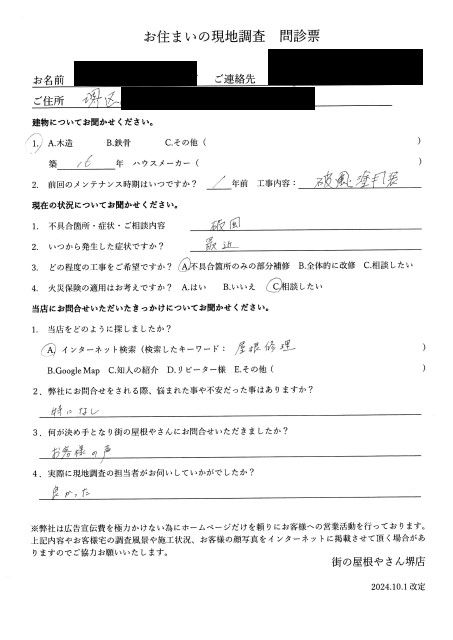 お住まいの現地調査 問診票
お名前 ご連絡先
ご住所 堺区
建物についてお聞かせください。
1. A.木造 B.鉄骨 C.その他 ( )
築 16 年 ハウスメーカー ( )
2. 前回のメンテナンス時期はいつですか? 1 年前 工事内容: 破風塗装
現在の状況についてお聞かせください。
1. 不具合箇所・症状・ご相談内容 破風
2. いつから発生した症状ですか? 最近
3. どの程度の工事をご希望ですか? A.不具合箇所のみの部分補修 B.全体的に改修 C.相談したい
4. 火災保険の適用はお考えですか? A.はい B.いいえ C.相談したい
当店にお問合せいただいたきっかけについてお聞かせください。
1. 当店をどのように探しましたか?
A. インターネット検索 (検索したキーワード: 屋根修理 )
B.Google Map C.知人の紹介 D.リピーター様 E.その他 ( )
2.弊社にお問合せをされる際、悩まれた事や不安だった事はありますか?
特になし
3.何が決め手となり街の屋根やさんにお問合せいただきましたか?
お客様の声
4.実際に現地調査の担当者がお伺いしていかがでしたか?
良かった
※弊社は広告宣伝費を極力かけない為にホームページだけを頼りにお客様への営業活動を行っております。
上記内容やお客様宅の調査風景や施工状況、お客様の顔写真をインターネットに掲載させて頂く場合があ
りますのでご協力お願いいたします。
街の屋根やさん堺店
2024.10.1 改定